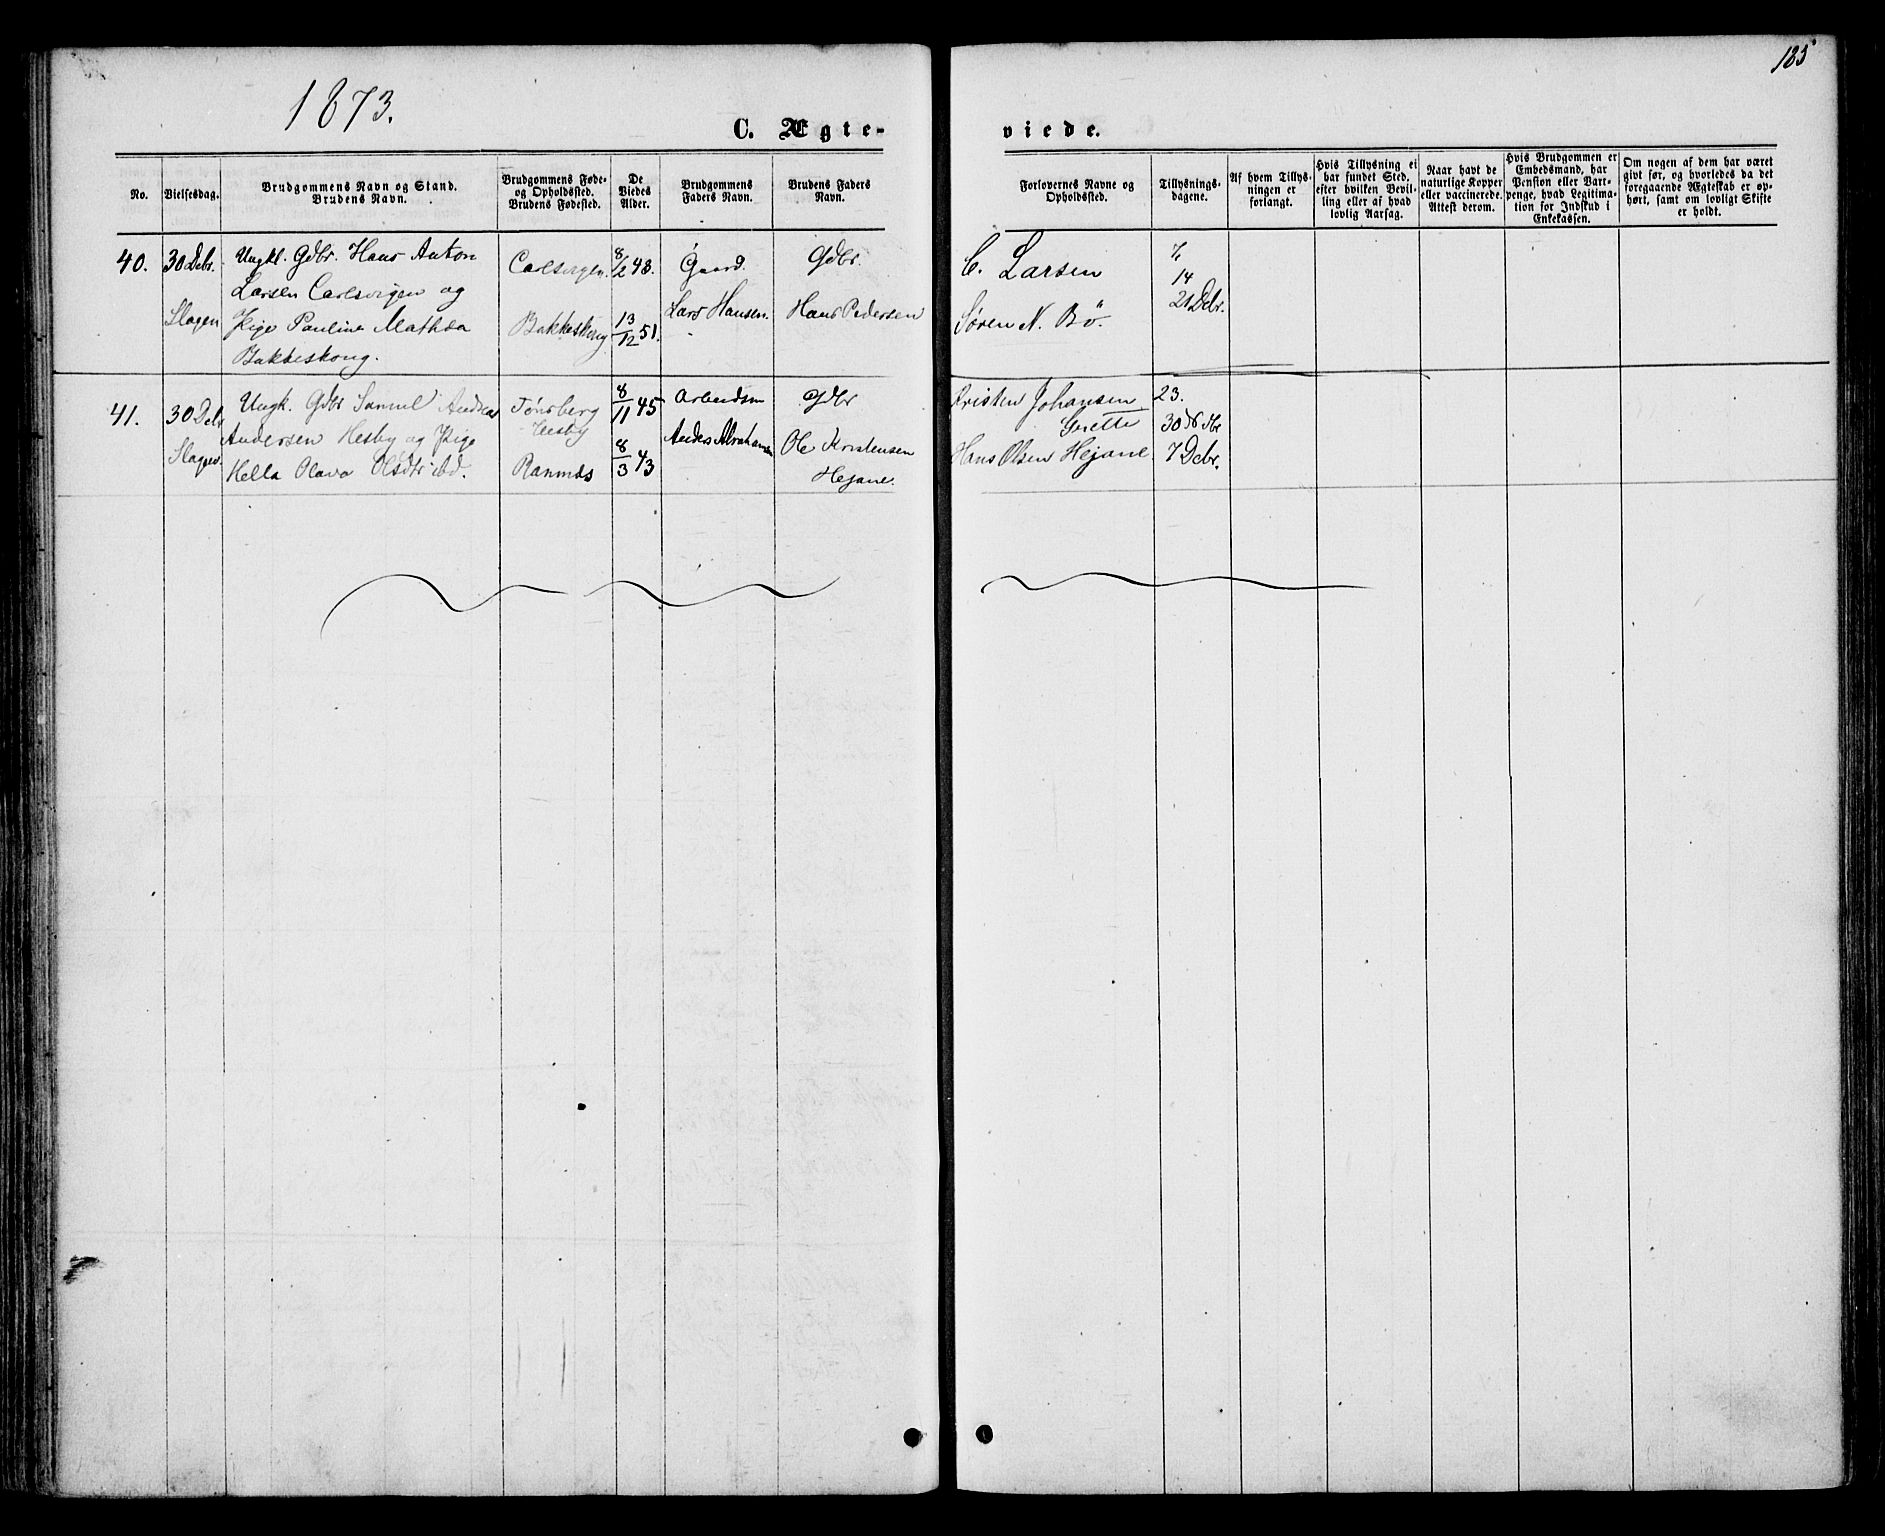 185
1873.
C. Ægte-
viede.
No.
Vielsesdag.
Brudgommens Navn og Stand.
Brudens Navn.
Brudgommens Føde-
og Opholdssted.
Brudens Fødested.
De
Viedes
Alder.
Brudgommens
Faders Navn.
Brudens Faders
Navn.
Forlovernes Navne og
Opholdssted.
Tillysnings-
dagene.
Af hvem Tillys-
ningen er
forlangt.
Hvis Tillysning ei
har fundet Sted,
efter hvilken Bevil-
ling eller af hvad
lovlig Aarsag.
Naar havt de
naturlige Kopper
eller vaccinerede.
Attest derom.
Hvis Brudgommen er
Embedsmand, har
Pension eller Vart-
penge, hvad Legitima-
tion for Indskud i
Enkekassen.
Om nogen af dem har været
givt før, og hvorledes da det
foregaaende Ægteskab er op-
hørt, samt om lovligt Skifte
er holdt.
40.
30 Debr.
Slagen
Ungkl. Gdbr. Hans Anton
Larsen Carlsvigen og
Pige Pauline Mathea
Bakkeskoug.
Carlsvigen
Bakkeskoug
8/2 48.
13/12 51.
Gaard.
Lars Hansen.
Gdbr.
Hans Pedersen
C. Larsen
Søren N. Bö.
7,
14
21 Debr.
41.
30 Debr
Slagen.
Ungk. Gdbr Samuel Andreas
Andersen Hesby og Pige
Hella Olava Olsdtr ibd.
Tönsberg
Hesby
Ramnæs
8/11 45
8/3 43
Arbeidsm
Anders Abrahamsen
Gdbr
Ole Kristensen
Hejane.
Kristen Johansen
Grette
Hans Olsen Hejane
23.
30 Nbr
7 Debr.